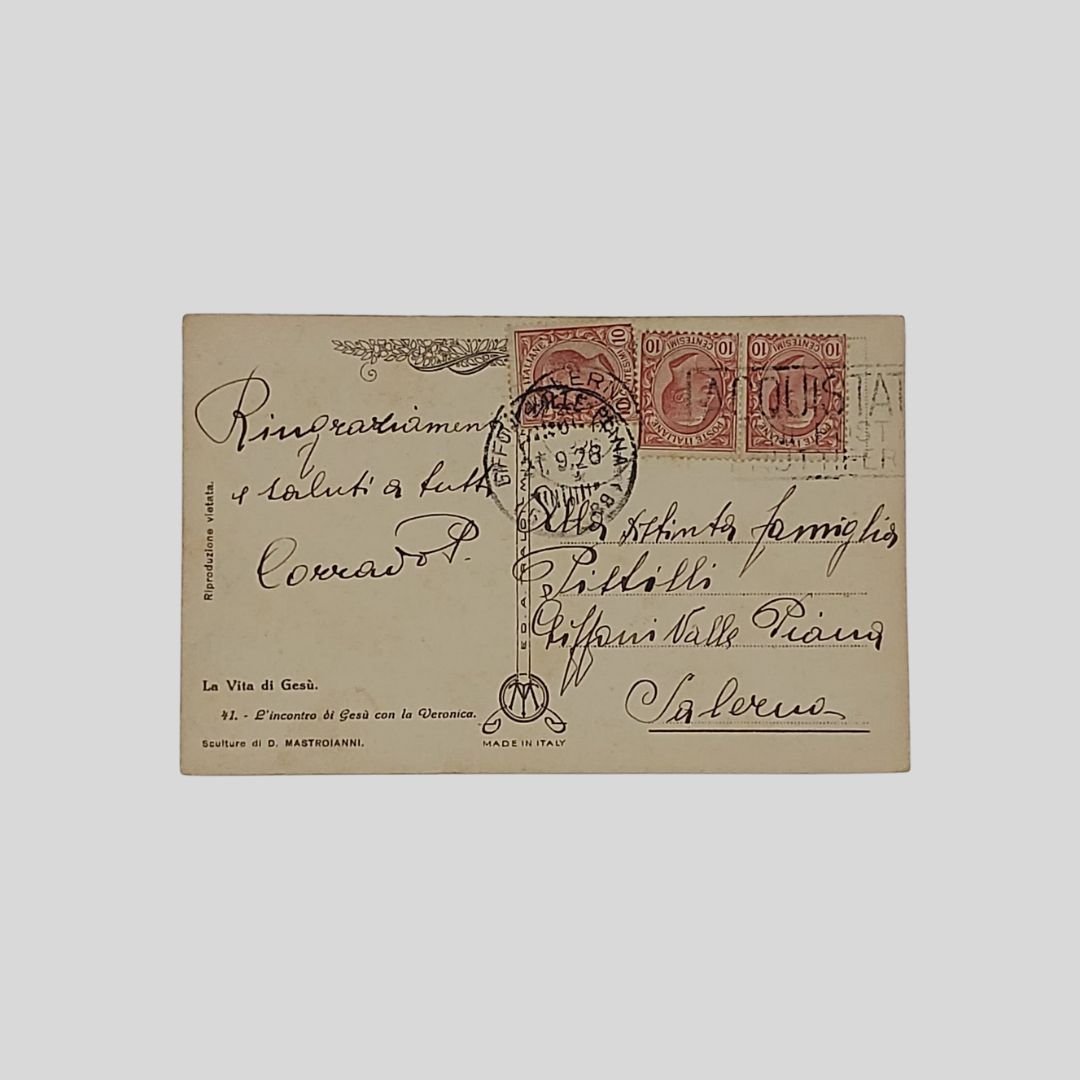 Ringraziamenti
e saluti a tutti
Corrado P.
Riproduzione vietata.
La Vita di Gesù.
41. - L'incontro di Gesù con la Veronica.
Sculture di D. MASTROIANNI.
ED. A. TRALDI. MILANO
MADE IN ITALY
10 CENTESIMI 10
POSTE ITALIANE
10 CENTESIMI 10
POSTE ITALIANE
10 CENTESIMI 10
POSTE ITALIANE
GIFFONI VALLE PIANA
9.28
ACQUISTA
Alla Distinta famiglia
Pittilli
Giffoni Valle Piana
Salerno